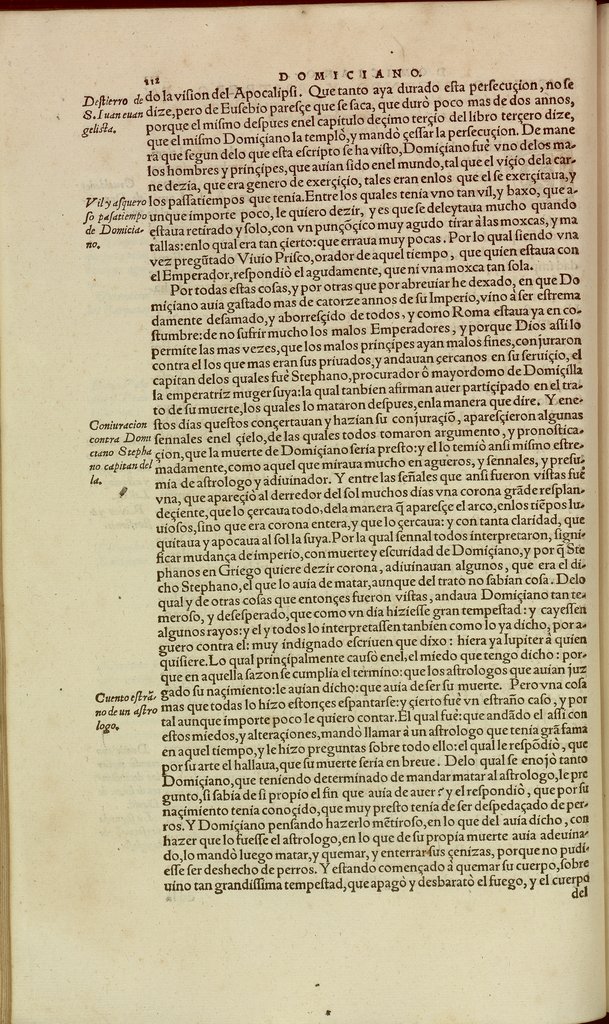 212
DOMICIANO.
Destierro de
S. Iuan euan
gelista.
do la vision del Apocalipsi. Que tanto aya durado esta persecuçion, no se
dize, pero de Eusebio paresçe que se saca, que durò poco mas de dos annos,
porque el mismo despues enel capitulo deçimo terçio del libro terçero dize,
que el mismo Domiçiano la templò, y mandò çessar la persecuçion. De mane
ra que segun delo que esta escripto se ha visto, Domiçiano fuè vno delos ma-
los hombres y prinçipes, que auian sido enel mundo, tal que el viçio dela car-
ne dezia, que era genero de exerçiçio, tales eran enlos que el se exerçitaua, y
Vil y asquero
so pasatiempo
de Domicia-
no.
los passatiempos que tenia. Entre los quales tenia vno tan vil, y baxo, que a-
unque importe poco, le quiero dezir, y es que se deleytaua mucho quando
estaua retirado y solo, con vn punçonçico muy agudo tirar à las moxcas, y ma
tallas: enlo qual era tan çierto: que erraua muy pocas. Por lo qual siendo vna
vez pregũtado Viuio Prisco, orador de aquel tiempo, que quien estaua con
el Emperador, respondiò el agudamente, que ni vna moxca tan sola.
Por todas estas cosas, y por otras que por abreuiar he dexado, en que Do
miçiano auia gastado mas de catorze annos de su Imperio, vino à ser estrema
damente desamado, y aborresçido de todos, y como Roma estaua ya en co-
stumbre: de no sufrir mucho los malos Emperadores, y porque Dios assi lo
permite las mas vezes, que los malos prinçipes ayan malos fines, conjuraron
contra el los que mas eran sus priuados, y andauan çercanos en su seruiçio, el
capitan delos quales fuè Stephano, procurador ô mayordomo de Domiçilla
la emperatriz muger suya: la qual tanbien afirman auer partiçipado en el tra-
to de su muerte, los quales lo mataron despues, enla manera que dire. Y ene-
Coniuracion
contra Domi
ciano Stepha
no capitan del
la.
stos dias questos conçertauan y hazian su conjuraçiõ, aparesçieron algunas
sennales enel çielo, de las quales todos tomaron argumento, y pronostica-
çion, que la muerte de Domiçiano seria presto: y el lo temiò ansi mismo estre-
madamente, como aquel que miraua mucho en agueros, y sennales, y presu-
mia de astrologo y adiuinador. Y entre las señales que ansi fueron vistas fuè
vna, que apareçiò al derredor del sol muchos dias vna corona grãde resplan-
deçiente, que lo çercaua todo, dela manera q̃ aparesçe el arco, enlos tiẽpos lu-
uiosos, sino que era corona entera, y que lo çercaua: y con tanta claridad, que
quitaua y apocaua al sol la suya. Por la qual sennal todos interpretaron, signi-
ficar mudança de imperio, con muerte y escuridad de Domiçiano, y por q̃ Ste
phanos en Griego quiere dezir corona, adiuinauan algunos, que era el di-
cho Stephano, el que lo auia de matar, aunque del trato no sabian cosa. Delo
qual y de otras cosas que entonçes fueron vistas, andaua Domiçiano tan te-
meroso, y desesperado, que como vn dia hiziesse gran tempestad: y cayessen
algunos rayos: y el y todos lo interpretassen tanbien como lo ya dicho, por a-
guero contra el: muy indignado escriuen que dixo: hiera ya Iupiter à quien
quisiere. Lo qual prinçipalmente causò enel, el miedo que tengo dicho: por-
que en aquella sazon se cumplia el termino: que los astrologos que auian juz
Cuento estrã-
no de un astro
logo.
gado su naçimiento: le auian dicho: que auia de ser su muerte. Pero vna cosa
mas que todas lo hizo estonçes espantarse: y çierto fuè vn estraño caso, y por
tal aunque importe poco le quiero contar. El qual fuè: que andãdo el assi con
estos miedos, y alteraçiones, mandò llamar à un astrologo que tenia grã fama
en aquel tiempo, y le hizo preguntas sobre todo ello: el qual le respõdiò, que
por su arte el hallaua, que su muerte seria en breue. Delo qual se enojò tanto
Domiçiano, que teniendo determinado de mandar matar al astrologo, le pre
gunto, si sabia de si propio el fin que auia de auer: y el respondiò, que por su
naçimiento tenia conoçido, que muy presto tenia de ser despedaçado de per-
ros. Y Domiçiano pensando hazerlo mẽtiroso, en lo que del auia dicho, con
hazer que lo fuesse el astrologo, en lo que de su propia muerte auia adeuina-
do, lo mandò luego matar, y quemar, y enterrar sus çenizas, porque no pudi-
esse ser deshecho de perros. Y estando començado à quemar su cuerpo, sobre
uino tan grandissima tempestad, que apagò y desbaratò el fuego, y el cuerpo
del